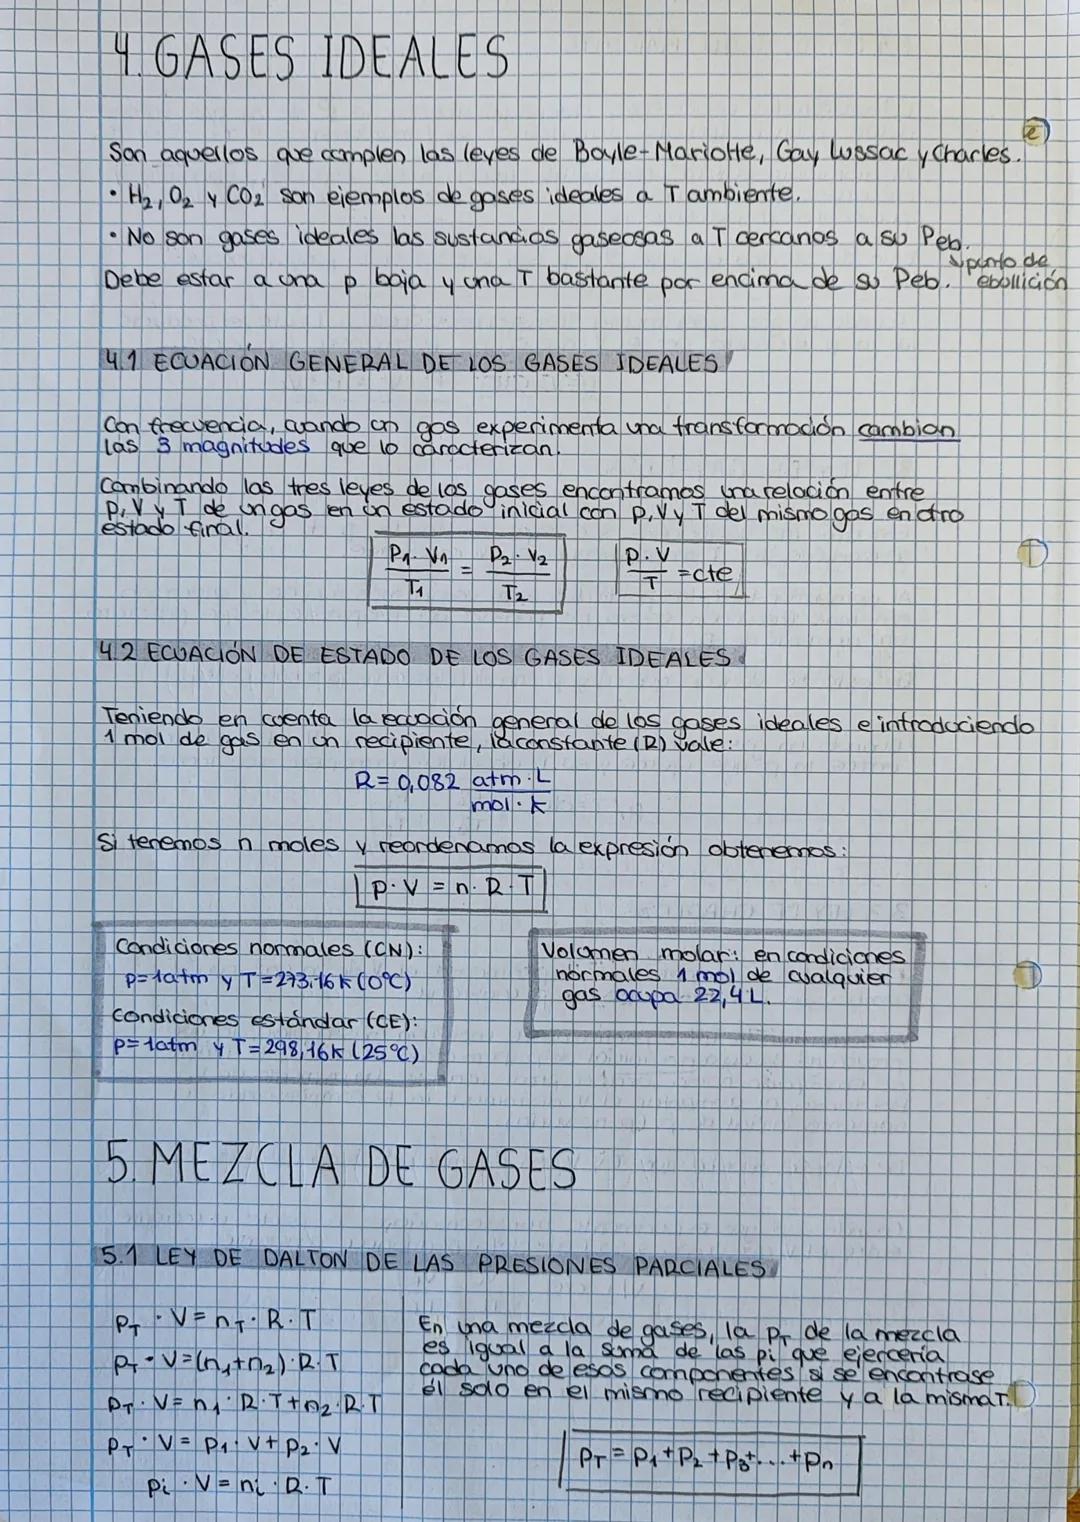 4. GASES IDEALES
Son aquellos que cumplen las leyes de Boyle-Mariotte, Gay Lussac y Charles.
• H₂, O₂ y CO₂ son ejemplos de gases ideales a T ambiente.
• No son gases ideales las sustancias gaseosas a T cercanos a su Peb.
↘punto de
ebollición
Debe estar a una p baja y una T bastante por encima de su Peb.
4.1 ECUACIÓN GENERAL DE LOS GASES IDEALES
Con frecuencia, cuando un gas experimenta una transformación cambian
las 3 magnitudes que lo caracterizan.
Combinando las tres leyes de los gases encontramos una relación entre
p, V y T de un gas en un estado inicial con p, V y T del mismo gas en otro
estado final.
P₁·V₁/T₁ = P₂·V₂/T₂ P·V/T = cte
4.2 ECUACIÓN DE ESTADO DE LOS GASES IDEALES
Teniendo en cuenta la ecuación general de los gases ideales e introduciendo
1 mol de gas en un recipiente, la constante (R) vale:
R = 0,082 atm·L/mol·K
Si tenemos n moles y reordenamos la expresión obtenemos:
p·V = n·R·T
Condiciones normales (CN):
p=1atm y T=273,16K (0°C)
Condiciones estándar (CE):
p=1atm y T=298,16K (25°C)
Volumen molar: en condiciones
normales 1 mol de cualquier
gas ocupa 22,4 L.
5. MEZCLA DE GASES
5.1 LEY DE DALTON DE LAS PRESIONES PARCIALES
P_T · V = n_T · R·T
P_T · V = (n₁+n₂)·R·T
P_T · V = n₁·R·T + n₂·R·T
P_T · V = P₁·V + P₂·V
Pi · V = ni · R·T
En una mezcla de gases, la p_T de la mezcla
es igual a la suma de las pi que ejercería
cada uno de esos componentes si se encontrase
él solo en el mismo recipiente y a la misma T.
P_T = P₁ + P₂ + P₃ + ... + Pn